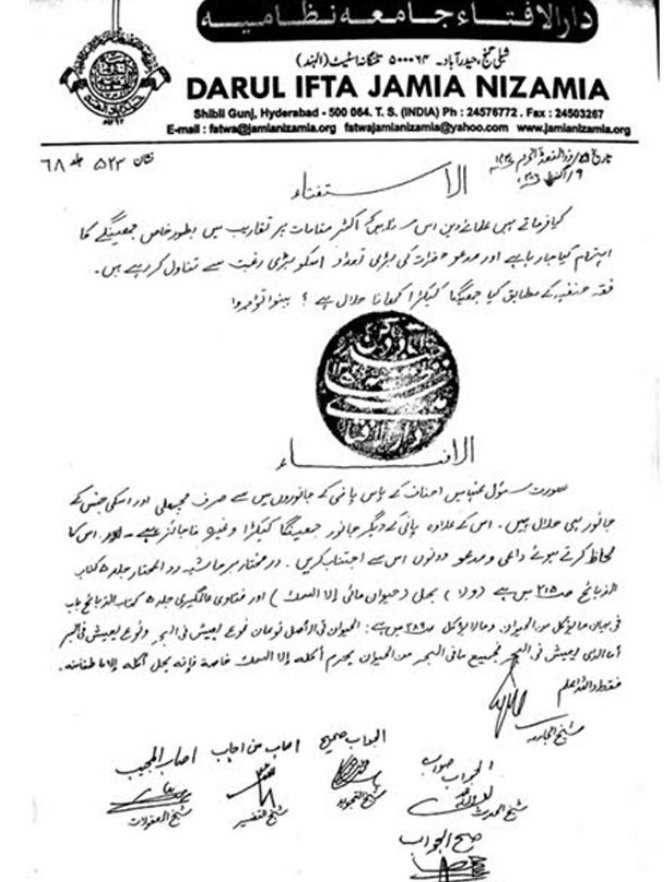 دارالافتاء جامعہ نظامیہ
شبلی گنج، حیدرآباد۔ ۵۰۰۰۶۴ تلنگانہ اسٹیٹ (الہند)
DARUL IFTA JAMIA NIZAMIA
Shibli Gunj, Hyderabad - 500 064. T. S. (INDIA) Ph : 24576772 . Fax : 24503267
E-mail : fatwa@jamianizamia.org fatwajamianizamia@yahoo.com www.jamianizamia.org
نشان ۵۲۳ جلد ۶۸
الاستفتاء
کیا فرماتے ہیں علمائے دین اس مسئلہ میں کہ اکثر مقامات پر تقاریب میں بطور خاص جھینگے کا
اہتمام کیا جارہا ہے اور مدعو حضرات کی بڑی تعداد اسکو بڑی رغبت سے تناول کررہے ہیں۔
فقہ حنفیہ کے مطابق کیا جھینگا کیکڑا کھانا حلال ہے ؟ بینوا تؤجروا
الافتاء
صورت مسئول عنہا میں احناف کے پاس پانی کے جانوروں میں سے صرف مچھلی اور اسکی جنس کے
جانور ہی حلال ہیں۔ اس کے علاوہ پانی کے دیگر جانور جھینگا کیکڑا وغیرہ ناجائز ہے۔ اس کا
لحاظ کرتے ہوئے داعی و مدعو دونوں اس سے اجتناب کریں۔ درمختار برحاشیہ ردالمحتار جلد ۵ کتاب
الذبائح ص ۲۱۵ میں ہے (ولا) یحل (حیوان مائی إلا السمك) اور فتاوی عالمگیری جلد ۵ کتاب الذبائح باب
فی بیان مایؤکل من الحیوان ومالا یؤکل ص ۲۸۹ میں ہے: الحیوان فی الأصل نوعان نوع یعیش فی البحر ونوع یعیش فی البر
أما الذی یعیش فی البحر فجمیع مافی البحر من الحیوان یحرم أکله إلا السمك خاصة فإنه یحل أکله إلا ما طفا منه۔
فقط واللہ اعلم
شیخ الجامعہ
الجواب صحیح
اصاب من اجاب
اصاب المجیب
الجواب صواب
شیخ التجوید
شیخ التفسیر
شیخ المعقولات
شیخ الحدیث
صح الجواب